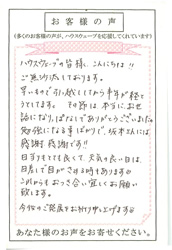 お客様の声
(多くのお客様の声が、ハウスウェーブを応援してくれています)
ハウスウェーブの皆様、こんにちは!!
ご無沙汰しております。
早いもので引っ越してから半年が経と
うとしてます。その節は本当にお世
話になり、ありがとうございました
勉強になる事ばかりで、坂本さんには
感謝 感謝です!!
日当りもとても良くて、天気の良い日は
日差しで目がさめる時もあります
これからもお付き合い宜しくお願い
致します。
今後のご発展をお祈り申し上げます
あなた様のお声をお寄せください。